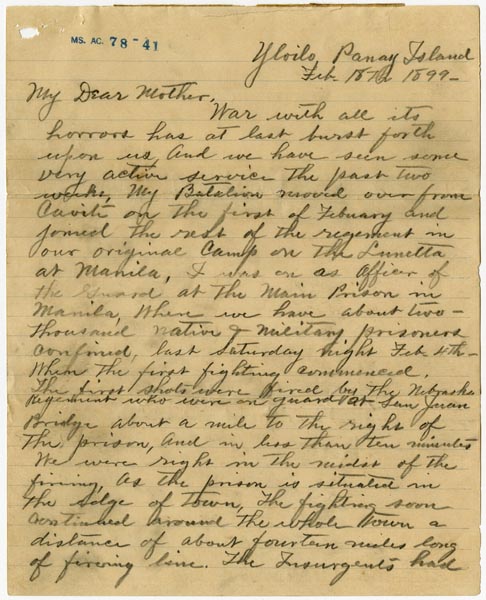 MS. AC. 78-41
Yloilo, Panay Island
Feb 18th 1899-
My Dear Mother,
War with all its
horrors has at last burst forth
upon us, And we have seen some
very active service the past two
weeks, My Batalion moved over from
Cavite on the first of Febuary and
joined the rest of the regement in
our original Camp on the Lunetta
at Manila, I was on as Officer of
the Guard at the Main Prison in
Manila, Where we have about two-
thousand native & military prisoners
confined, last Saturday night Feb 4th-
When the first fighting commenced.
The first shots were fired by the Nebraska
Regement who were on guard at San Juan
Bridge about a mile to the right of
the prison, and in less than ten minutes
We were right in the midst of the
fireing, As the prison is situated in
the edge of town, The fighting soon
continued around the whole town a
distance of about fourteen miles long
of fireing line. The Insurgents had